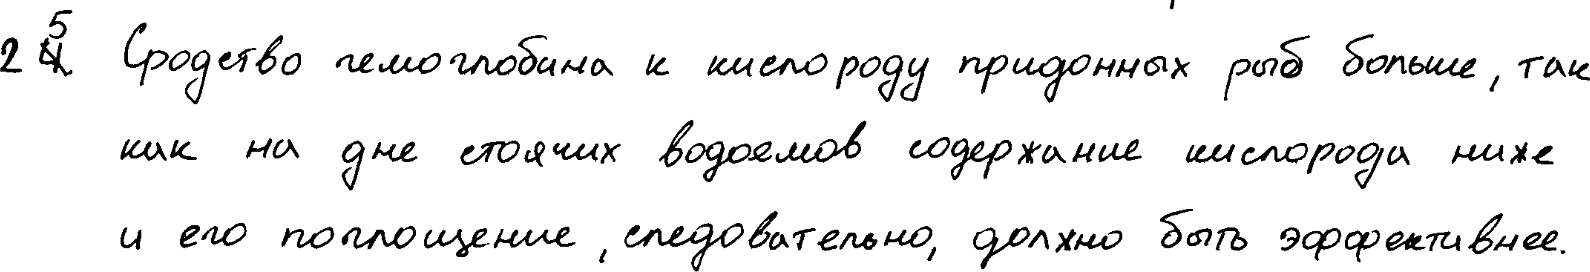 25 Сродство гемоглобина к кислороду придонных рыб больше, так
как на дне стоячих водоемов содержание кислорода ниже
и его поглощение, следовательно, должно быть эффективнее.